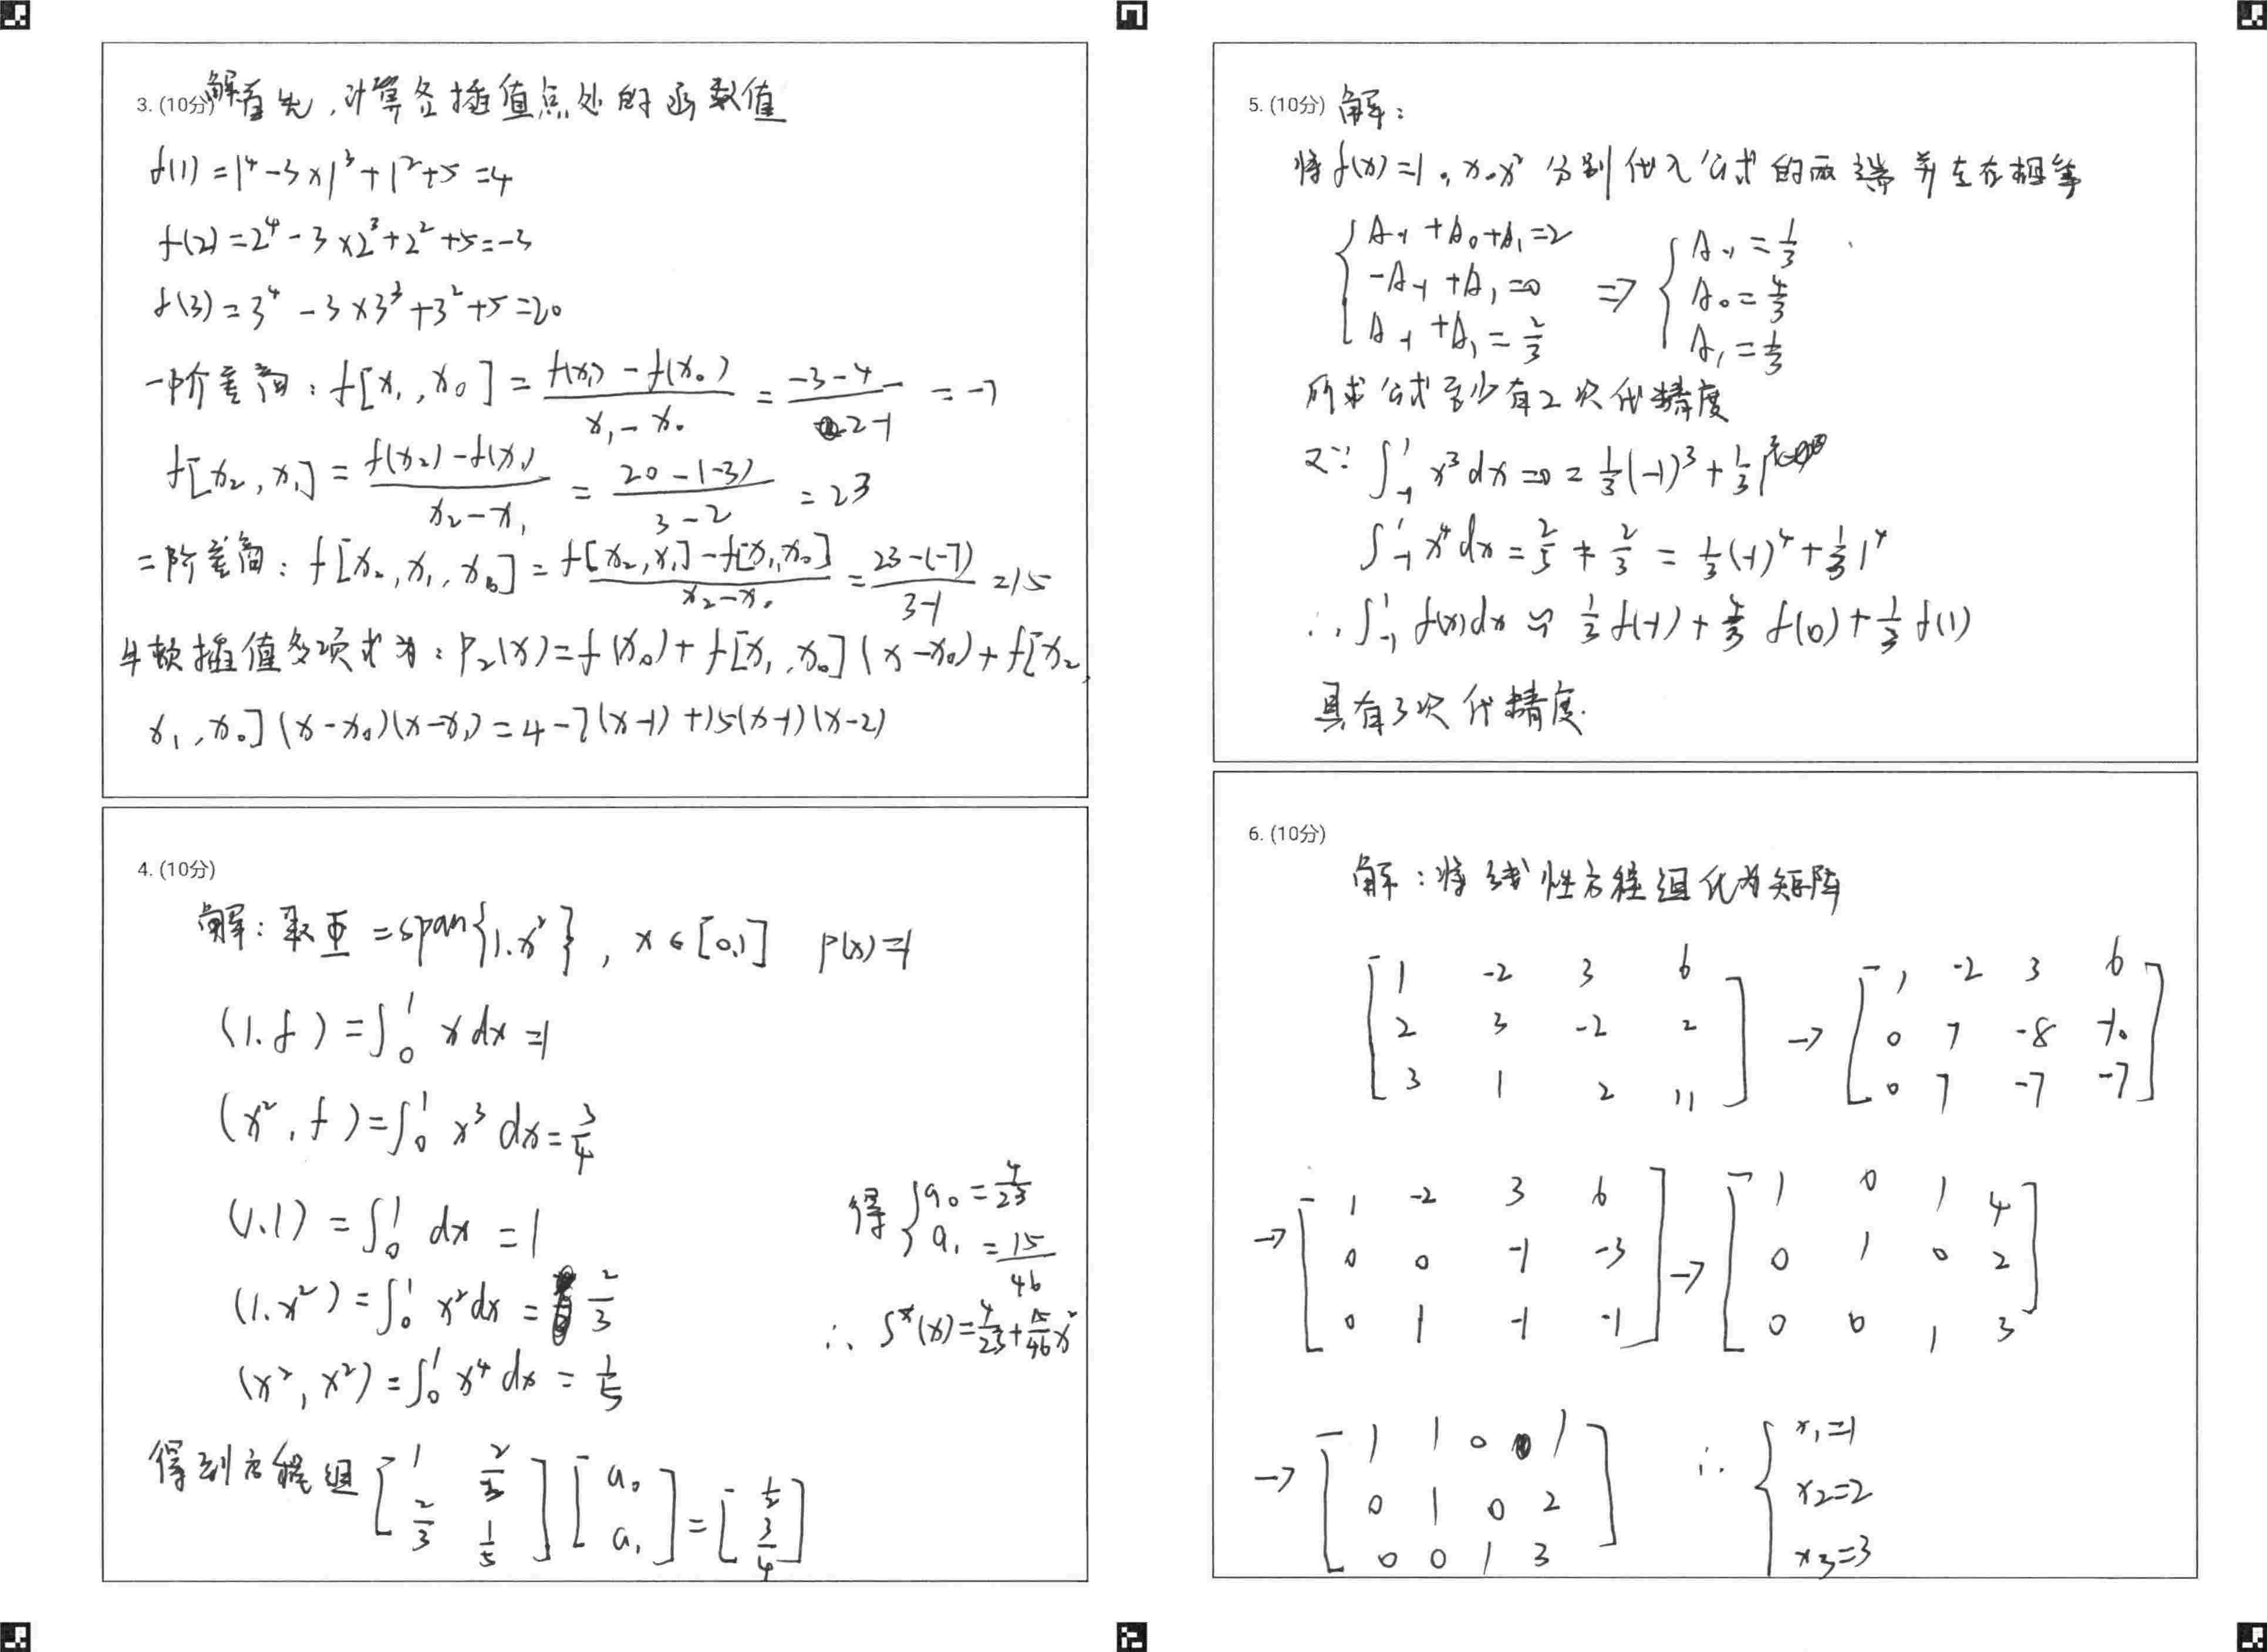 3. (10分) 解首先,计算各插值点处的函数值
f(1)=1⁴-3×1³+1²+5=4
f(2)=2⁴-3×2³+2²+5=-3
f(3)=3⁴-3×3³+3²+5=20
一阶差商:f[x₁,x₀]=\frac{f(x₁)-f(x₀)}{x₁-x₀}=\frac{-3-4}{2-1}=-7
f[x₂,x₁]=\frac{f(x₂)-f(x₁)}{x₂-x₁}=\frac{20-(-3)}{3-2}=23
二阶差商:f[x₂,x₁,x₀]=\frac{f[x₂,x₁]-f[x₁,x₀]}{x₂-x₀}=\frac{23-(-7)}{3-1}=15
牛顿插值多项式为:P₂(x)=f(x₀)+f[x₁,x₀](x-x₀)+f[x₂,
x₁,x₀](x-x₀)(x-x₁)=4-7(x-1)+15(x-1)(x-2)
4. (10分)
解:取重=span{1.x²}, x∈[0,1] ρ(x)=1
(1.f)=∫₀¹ x dx=1
(x²,f)=∫₀¹ x³ dx=\frac{3}{4}
(1.1)=∫₀¹ dx=1
(1.x²)=∫₀¹ x²dx=\frac{2}{3}
(x²,x²)=∫₀¹ x⁴ dx=\frac{1}{5}
得到方程组 [1 \frac{2}{3}; \frac{2}{3} \frac{1}{5}] [a₀; a₁]=[\frac{1}{2}; \frac{3}{4}]
得 {a₀=\frac{4}{23}
a₁=\frac{15}{46}
∴ S*(x)=\frac{4}{23}+\frac{15}{46}x²
5. (10分) 解:
将f(x)=1,x,x²分别代入公式的两端并左右相等
{A₋₁+A₀+A₁=2
-A₋₁+A₁=0
A₋₁+A₁=\frac{2}{3}
⇒ {A₋₁=\frac{1}{3}
A₀=\frac{4}{3}
A₁=\frac{1}{3}
所求公式至少有2次代精度
又∵ ∫₋₁¹ x³dx=0=\frac{1}{3}(-1)³+\frac{1}{3}1³
∫₋₁¹ x⁴dx=\frac{2}{5}≠\frac{2}{3}=\frac{1}{3}(-1)⁴+\frac{1}{3}1⁴
∴ ∫₋₁¹ f(x)dx≈\frac{1}{3}f(-1)+\frac{4}{3}f(0)+\frac{1}{3}f(1)
具有3次代精度.
6. (10分)
解:将线性方程组化为矩阵
[1 -2 3 6 → [1 -2 3 6
2 3 -2 2 0 7 -8 -10
3 1 2 11] 0 7 -7 -7]
→ [1 -2 3 6 → [1 0 1 4
0 0 -1 -3 0 1 0 2
0 1 -1 -1] 0 0 1 3]
→ [1 1 0 1 ∴ {x₁=1
0 1 0 2 x₂=2
0 0 1 3] x₃=3